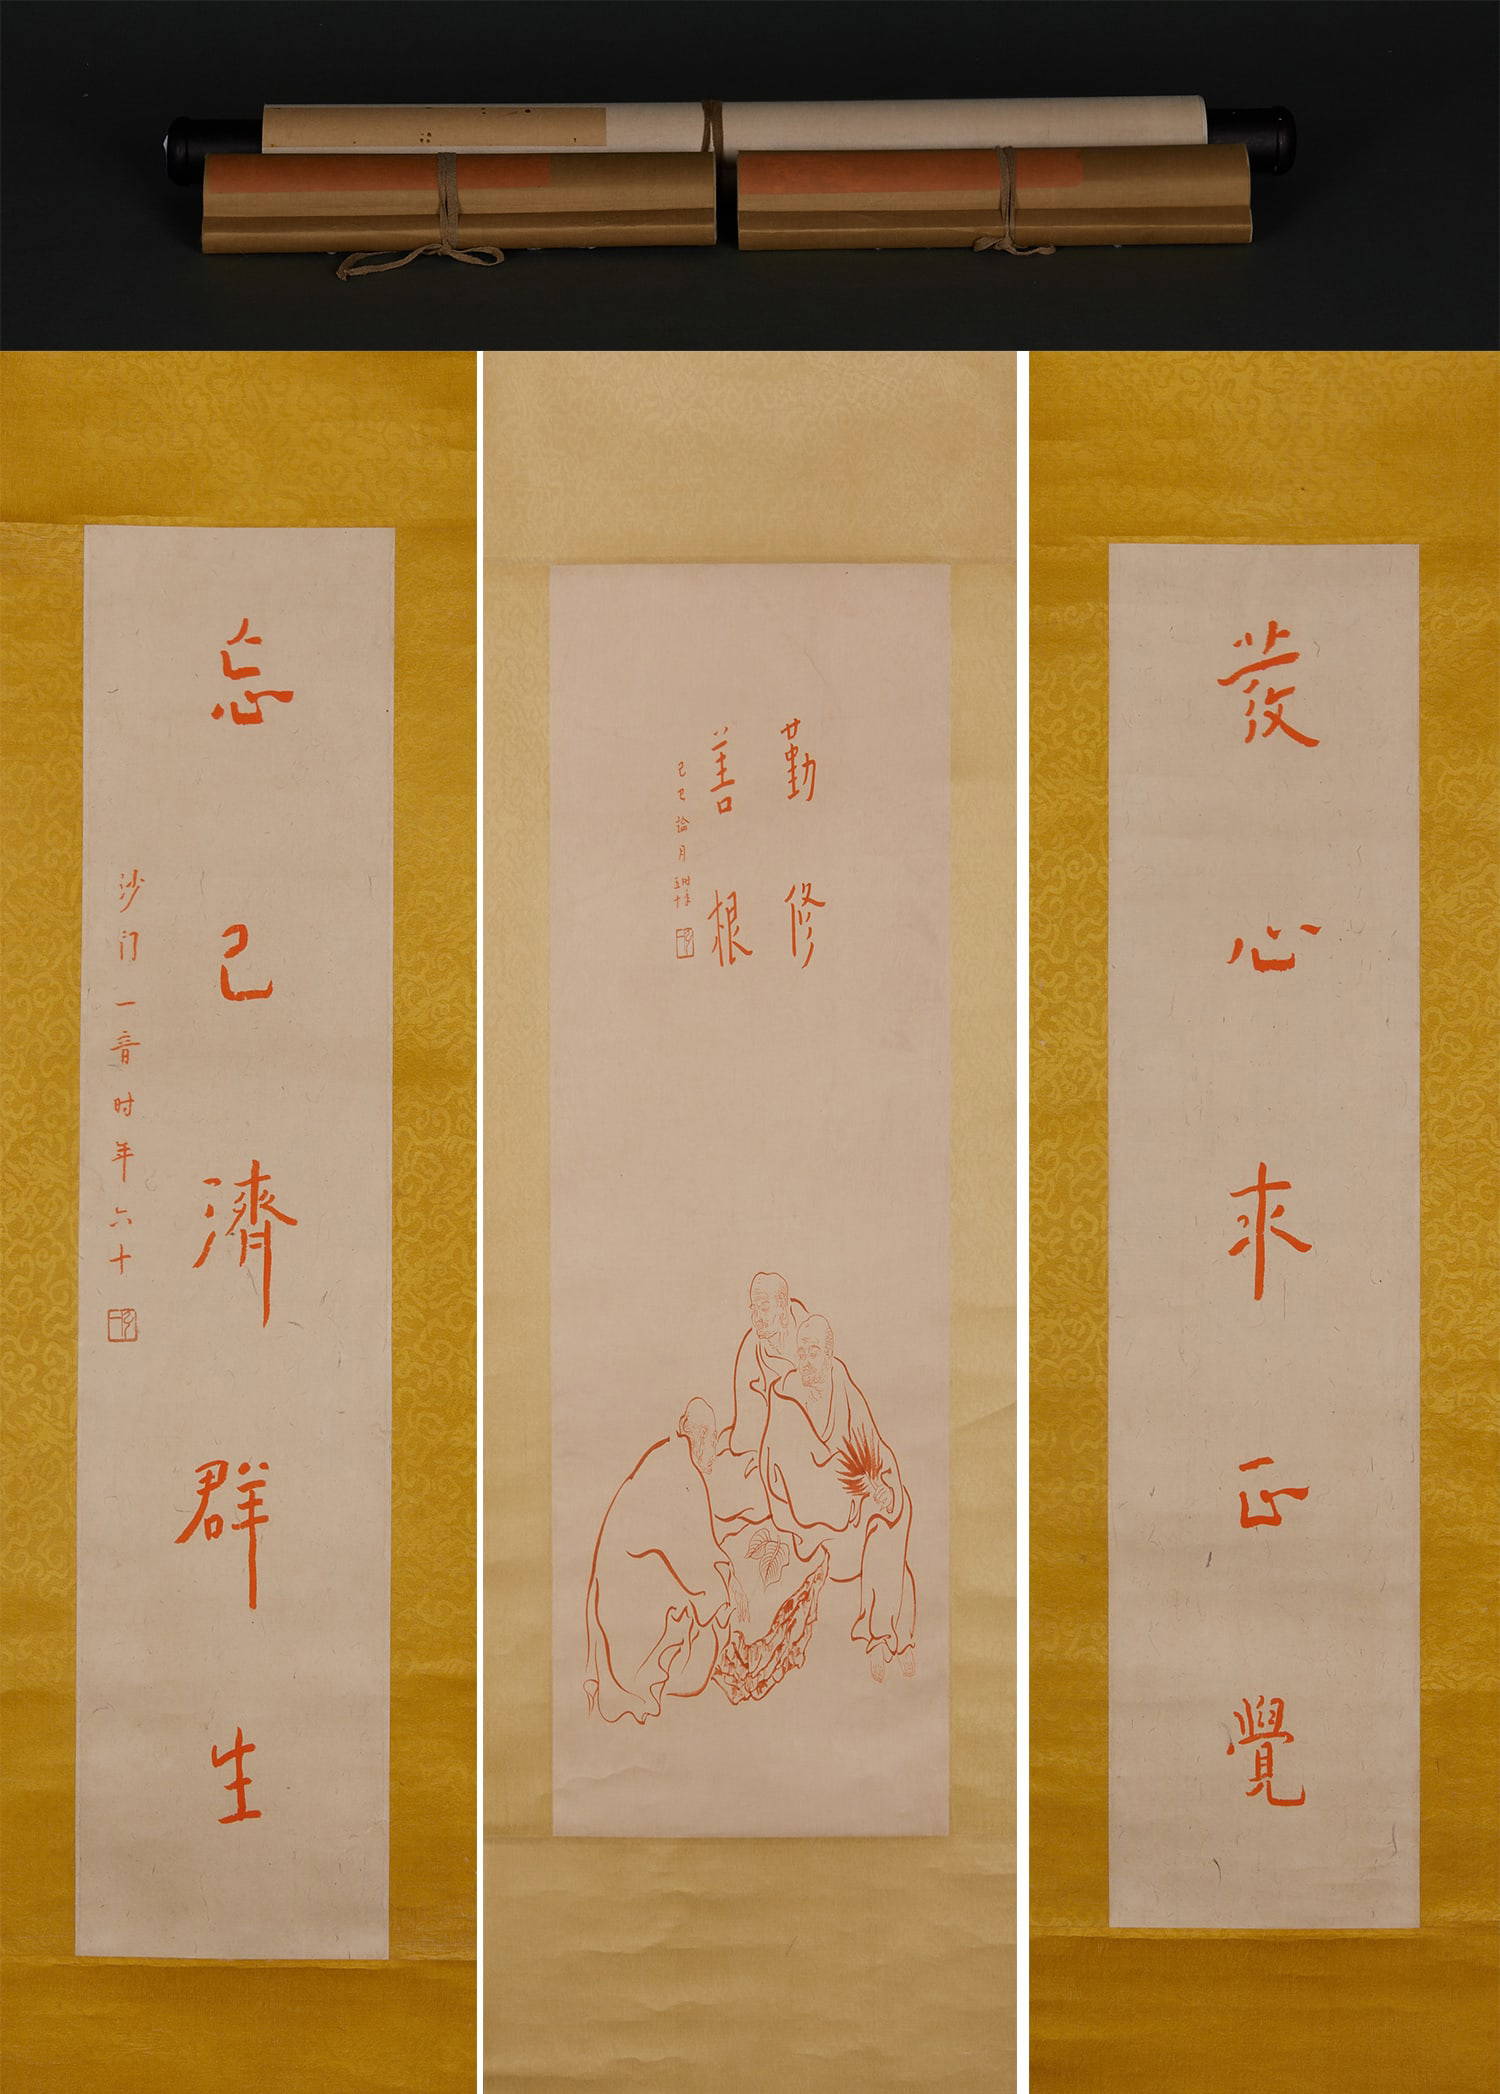 發心求正覺
勤修
善根
己巳論月時年五十
忘己濟群生
沙门一音时年六十